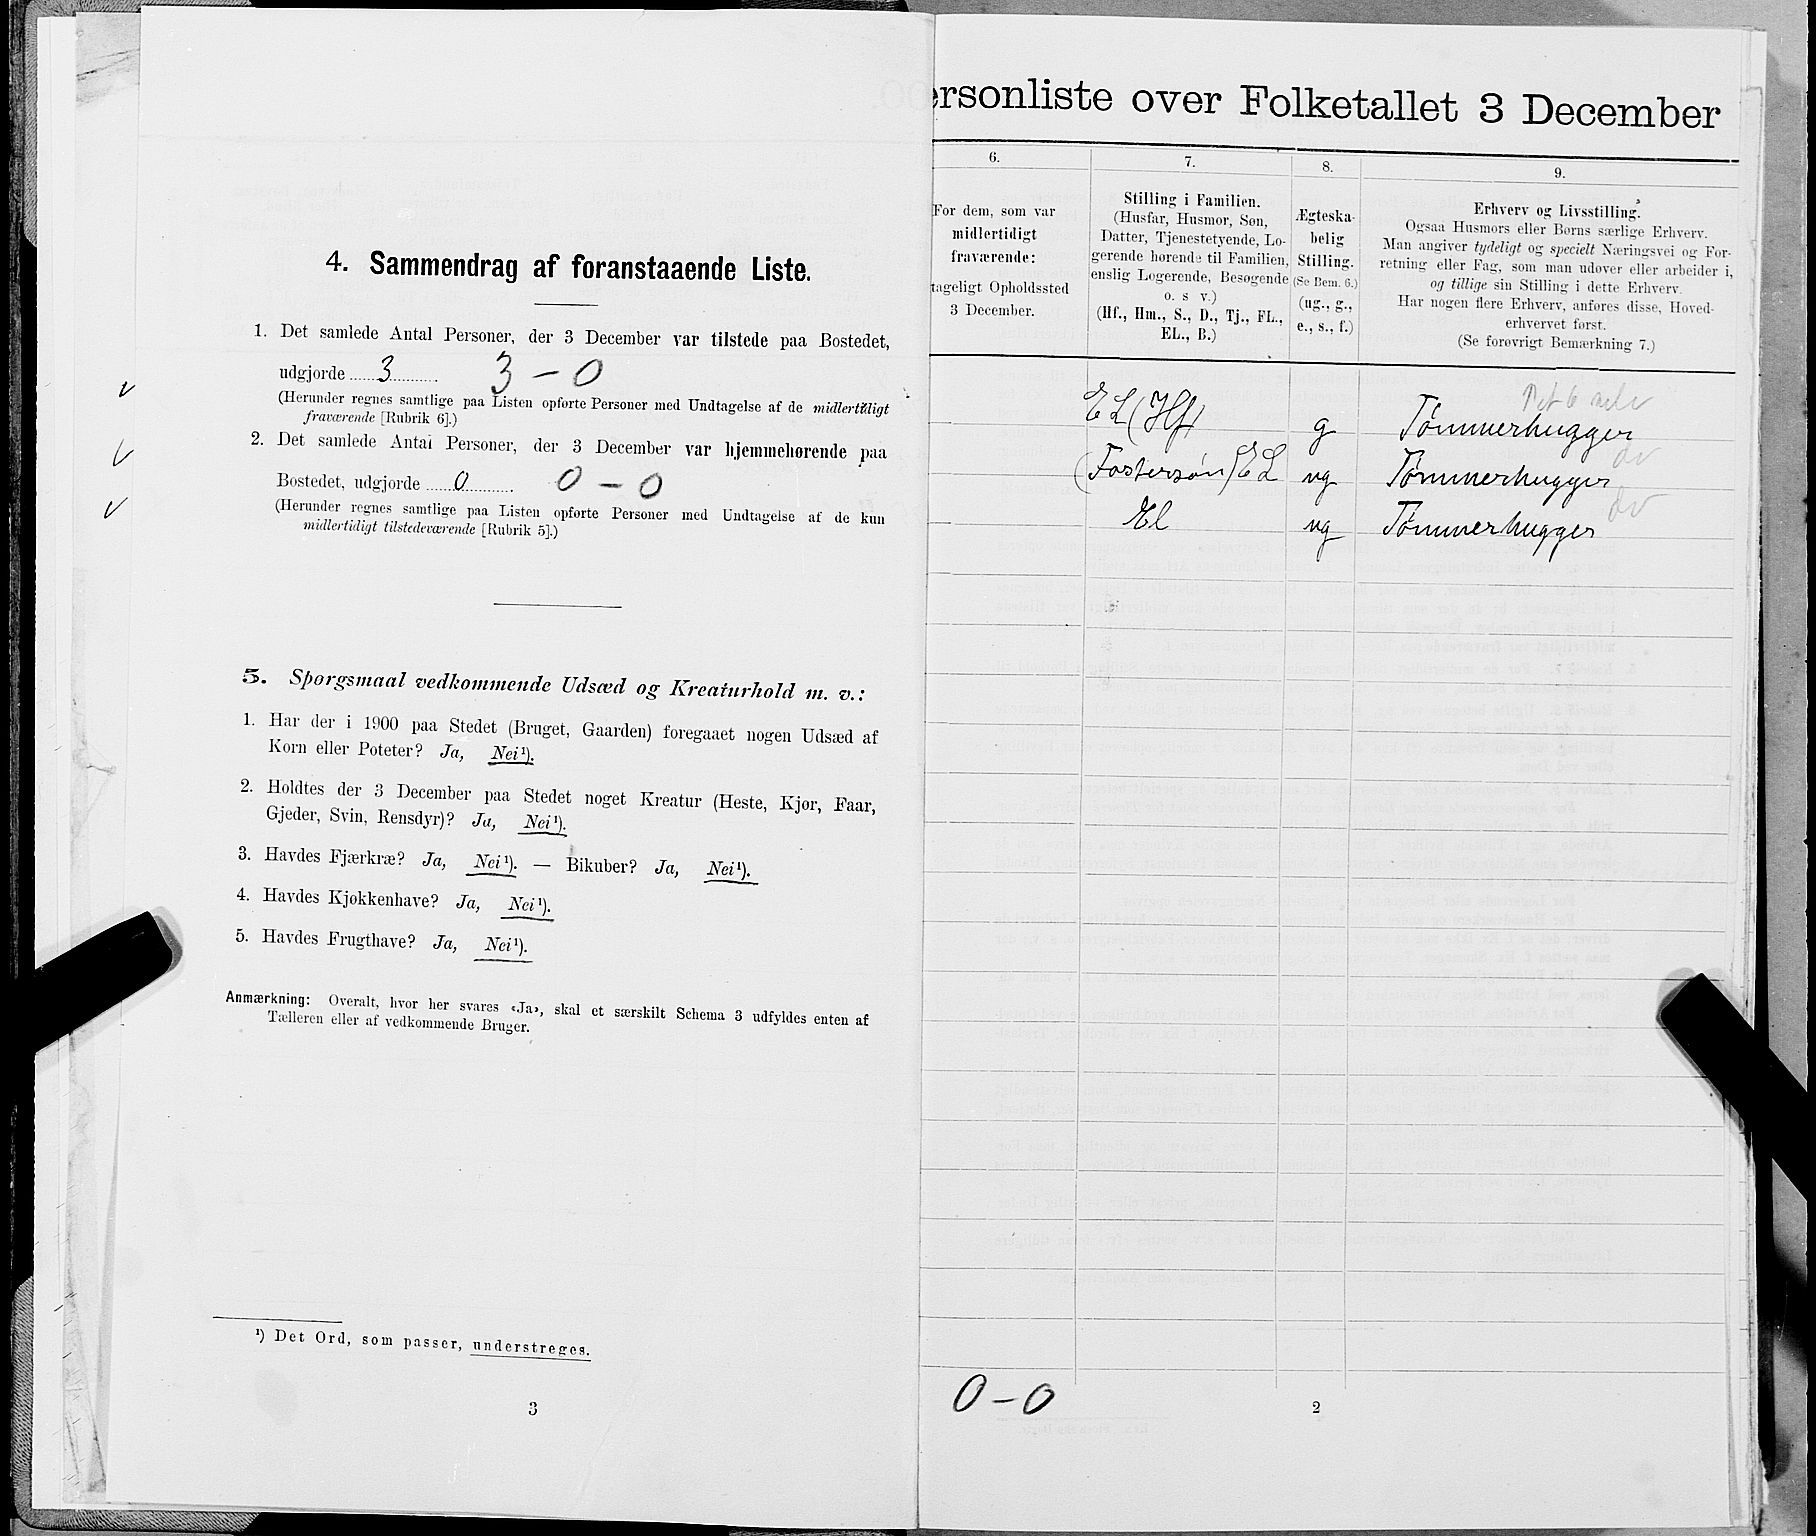 4. Sammendrag af foranstaaende Liste.
1. Det samlede Antal Personer, der 3 December var tilstede paa Bostedet,
udgjorde 3 3 – 0
(Herunder regnes samtlige paa Listen opførte Personer med Undtagelse af de midlertidigt
fraværende [Rubrik 6].)
2. Det samlede Antal Personer, der 3 December var hjemmehørende paa
Bostedet, udgjorde 0 0 – 0
(Herunder regnes samtlige paa Listen opførte Personer med Undtagelse af de kun
midlertidigt tilstedeværende [Rubrik 5].)
5. Spørgsmaal vedkommende Udsæd og Kreaturhold m. v.:
1. Har der i 1900 paa Stedet (Bruget, Gaarden) foregaaet nogen Udsæd af
Korn eller Poteter? Ja, Nei¹).
2. Holdtes der 3 December paa Stedet noget Kreatur (Heste, Kjør, Faar,
Gjeder, Svin, Rensdyr)? Ja, Nei¹).
3. Havdes Fjærkræ? Ja, Nei¹). — Bikuber? Ja, Nei¹).
4. Havdes Kjøkkenhave? Ja, Nei¹).
5. Havdes Frugthave? Ja, Nei¹).
Anmærkning: Overalt, hvor her svares «Ja», skal et særskilt Schema 3 udfyldes enten af
Tælleren eller af vedkommende Bruger.
¹) Det Ord, som passer, understreges.
3
ersonliste over Folketallet 3 December
6.
For dem, som var
midlertidigt
fraværende:
tageligt Opholdssted
3 December.
7.
Stilling i Familien.
(Husfar, Husmor, Søn,
Datter, Tjenestetyende, Lo-
gerende hørende til Familien,
enslig Logerende, Besøgende
o. s v.)
(Hf., Hm., S., D., Tj., FL.,
EL., B.)
8.
Ægteska-
belig
Stilling.
(Se Bem. 6.)
(ug., g.,
e., s., f.)
9.
Erhverv og Livsstilling.
Ogsaa Husmors eller Børns særlige Erhverv.
Man angiver tydeligt og specielt Næringsvei og For-
retning eller Fag, som man udøver eller arbeider i,
og tillige sin Stilling i dette Erhverv.
Har nogen flere Erhverv, anføres disse, Hoved-
erhvervet først.
(Se forøvrigt Bemærkning 7.)
EL (Hf) g Tømmerhugger
(Fostersøn) EL ug Tømmerhugger
El ug Tømmerhugger
0 – 0
2